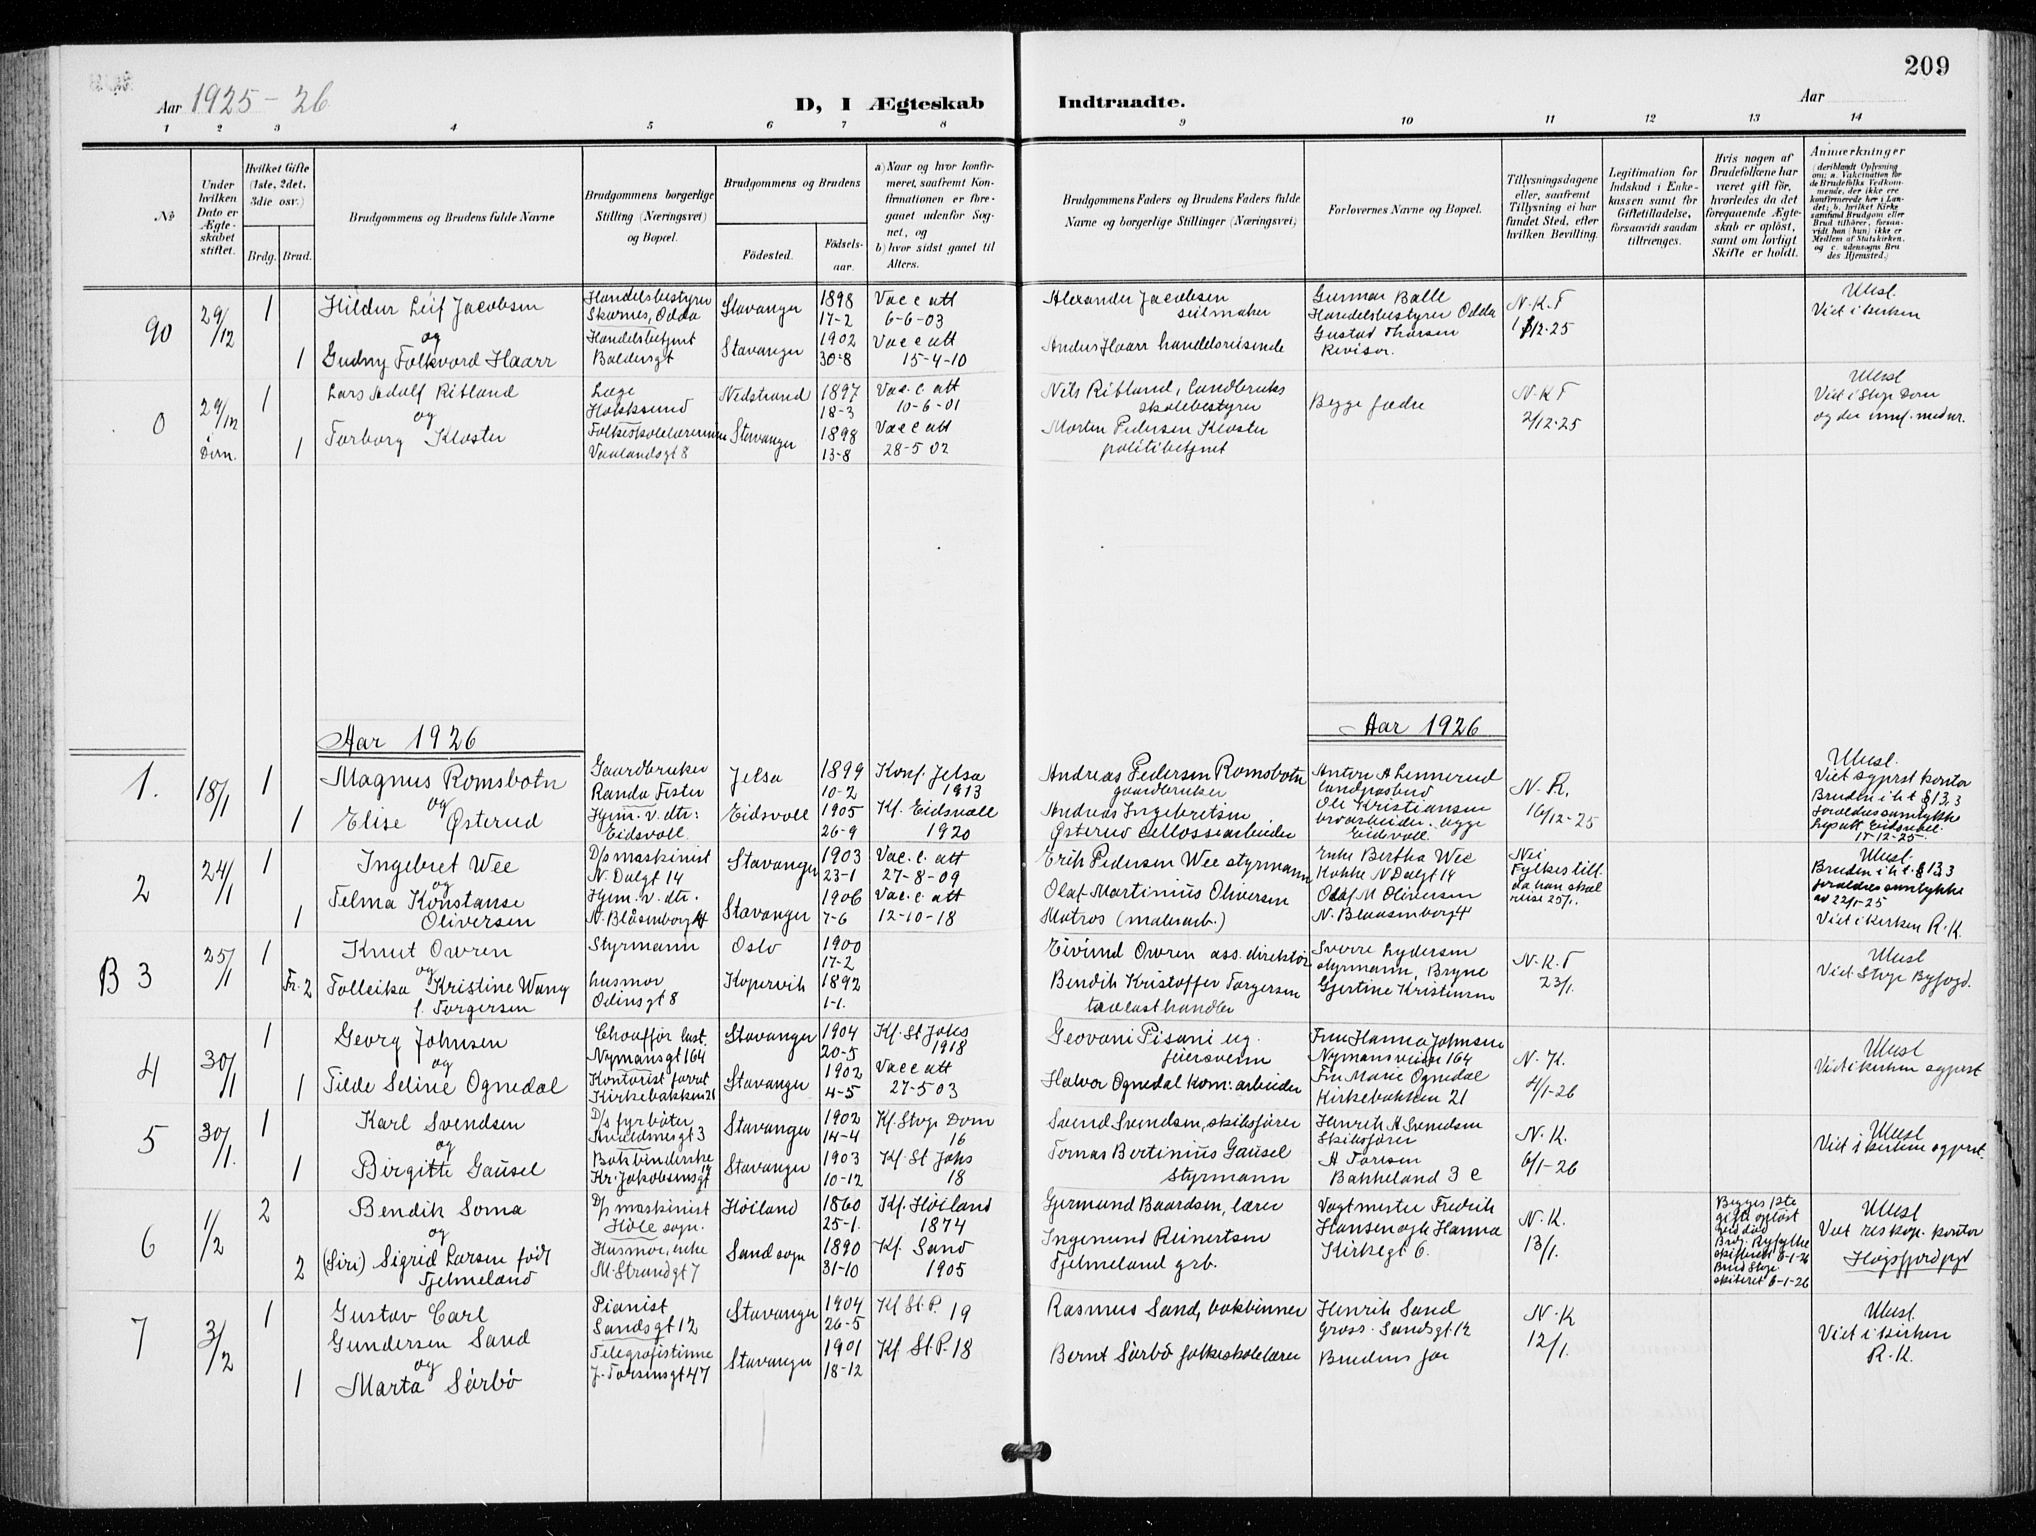 209
Aar 1925-26
D, I Ægteskab Indtraadte.
Aar
1 2 3 4 5 6 7 8 9 10 11 12 13 14
№
Under hvilken Dato er Ægte-skabet stiftet.
Hvilket Gifte (1ste, 2det, 3die osv.)
Brdg. Brud.
Brudgommens og Brudens fulde Navne
Brudgommens borgerlige Stilling (Næringsvei) og Bopæl.
Brudgommens og Brudens
Födested.
Födsels-aar.
a) Naar og hvor konfir-meret, saafremt Kon-firmationen er fore-gaaet udenfor Sog-net, og
b) hvor sidst gaaet til Alters.
Brudgommens Faders og Brudens Faders fulde Navne og borgerlige Stillinger (Næringsvei)
Forlovernes Navne og Bopæl.
Tillysningsdagene eller, saafremt Tillysning ei har fundet Sted, efter hvilken Bevilling.
Legitimation for Indskud i Enke-kassen samt for Giftetilladelse, forsaavidt saadan tiltrænges.
Hvis nogen af Brudefolkene har været gift för, hvorledes da det foregaaende Ægte-skab er oplöst, samt om lovligt Skifte er holdt.
Anmærkninger
(deriblandt Oplysning om: a. Vakcination for de Brudefolks Vedkom-mende, der ikke ere konfirmerede her i Lan-det; b. hvilket Kirke samfund Brudgom eller Brud tilhörer, forsaa-vidt han (hun) ikke er Medlem af Statskirken, og c. udensogns Bru des Hjemsted.)
90 29/12 1 Hildur Leif Jacobsen Handelsbestyrer Skarnes, Odda Stavanger 1898 17-2 Vacc att 6-6-03 Alexander Jacobsen seilmaker Gunnar Balle Handelsbestyrer Odda N.K.T Ulesl. Viet i kirken
og
1 Gudny Folkvord Haarr Handelsbetjent Baldersgt Stavanger 1902 30-8 Vacc att 15-4-10 Anders Haarr handelsreisende Gustav Thorsen Revisor. 12-25
0 29/12 Dom. 1 Lars Adolf Ritland Læge Hokksund Nedstrand 1897 18-3 Vac. c att 10-6-01 Nils Ritland, landbruks skolebestyrer Begge fædre N.K.T 2/12-25 Ulesl Viet i Stvgr Dom
og
1 Torborg Kloster Folkeskolelærerinne Vaalandsgt 8 Stavanger 1898 13-8 Vacc att 28-5 02 Morten Pedersen Kloster politibetjent
Aar 1926
Aar 1926
1. 18/1 1 Magnus Romsbotn Gaardbruker Randø Fister Jelsa 1899 10-2 Konf. Jelsa 1913 Andreas Pedersen Romsbotn gaardbruker Anton A Lennerud landpostbud N.K. Ulesl. Viet sgprst kontor
og
1 Elise Østerud Hjem. v. dtr: Eidsvoll Eidsvoll 1905 26-9 Kf. Eidsvoll 1920 Andreas Ingebretsen Østerud cellosearbeider Ole Kristiansen broarbeider. begge Eidsvoll 16/12-25 Bruden i h t § 13,3 foreldresamtykke
2 24/1 1 Ingebret Wee D/p maskinist N. Dalgt 14 Stavanger 1903 23-1 Vac. c. att 27-8-09 Erik Pedersen Wee styrmann Enke Bertha Wee Kokke N Dalgt 14 Nei Fylkestill. da han skal reise 25/1. Ulesl. Bruden i h t. § 13,3 foreldresamtykke
og
1 Telma Konstanse Oliversen Hjem. v. dtr. N. Blåsenborg 4 Stavanger 1906 7-6 Vac. c. att 12-10-18 Olaf Martinius Oliversen Matros (malerarb.) Olaf M Oliversen N. Blaasenborg 4 Viet i kirken R.K.
B 3 25/1 1 Knut Owren Styrmann Oslo 1900 17-2 Eivind Owren ass. direktør Sverre Lydersen styrmann, Bryne N.K.T 23/1. Ulesl Viet Stvgr Byfogd.
og
Fr. 2 Tolleika Kristine Wang f. Torgersen husmor Odinsgt 8 Kopervik 1892 1-1. Bendik Kristoffer Torgersen trælasthandler Gjertine Kristensen
4 30/1 1 Georg Johnsen Chauffør last. Nymansgt 164 Stavanger 1904 20-5 Kf. St Johs 1918 Geovani Pisani ug. feiersvenn Fru Hanna Johnsen Nymansveien 164 N.K. 4/1-26 Ulesl Viet i kirken sgprst
og
1 Tilde Seline Ognedal Kontorist forret Kirkebakken 21 Stavanger 1902 4-5 Vacc att 27-5 03 Halvor Ognedal kom: arbeider Fru Marie Ognedal Kirkebakken 21
5 30/1. 1 Karl Svendsen D/s fyrbøter Stavanger 1902 14-4 Kf. Stvgr Dom 16 Svend Svendsen, skibsfører Henrik A Svendsen Skibsfører N.K. 6/1-26 Ulesl Viet i kirken sgprst.
og
1 Birgitte Gausel Bokbinderske Kr. Jakobsensgt 19 Stavanger 1903 10-12 Kf. St Johs 18 Tomas Bertinius Gausel Styrmann A Toresen Bakkeland 3 c
6 1/2 2 Bendik Soma D/p maskinist Höle sogn. Höiland 1860 25-1. Kf. Höiland 1874 Gjermund Baardsen, lærer Vagtmester Fredrik Hansen og fr Hanna Kirkegt 6. N.K. 13/1. Begges 1ste gifte opløst ved død Brdg. Ryfylke skifteret 6-1-26 Brud Stvgr. skifteret 6-1-26 Ulesl Viet res kap. kontor Høgsfjord pgd
og
2 (Siri) Sigrid Larsen født Tjelmeland Husmor, enke M. Strandgt 7 Sand sogn 1890 31-10 Kf. Sand 1905 Ingemund Reinertsen Tjelmeland grb.
7 3/2 1 Gustav Carl Gundersen Sand Pianist Sandsgt 12 Stavanger 1904 26-5 Kf St. P. 19 Rasmus Sand, bokbinner Henrik Sand Gross. Sandsgt 12 N.K 12/1. Ulesl. Viet i kirken R.K.
og
1 Marta Sørbö Telegrafistinne J. Torsensgt 47 Stavanger 1901 18-12 Kf St P. 18 Bernt Sørbö folkeskolelærer Brudens far